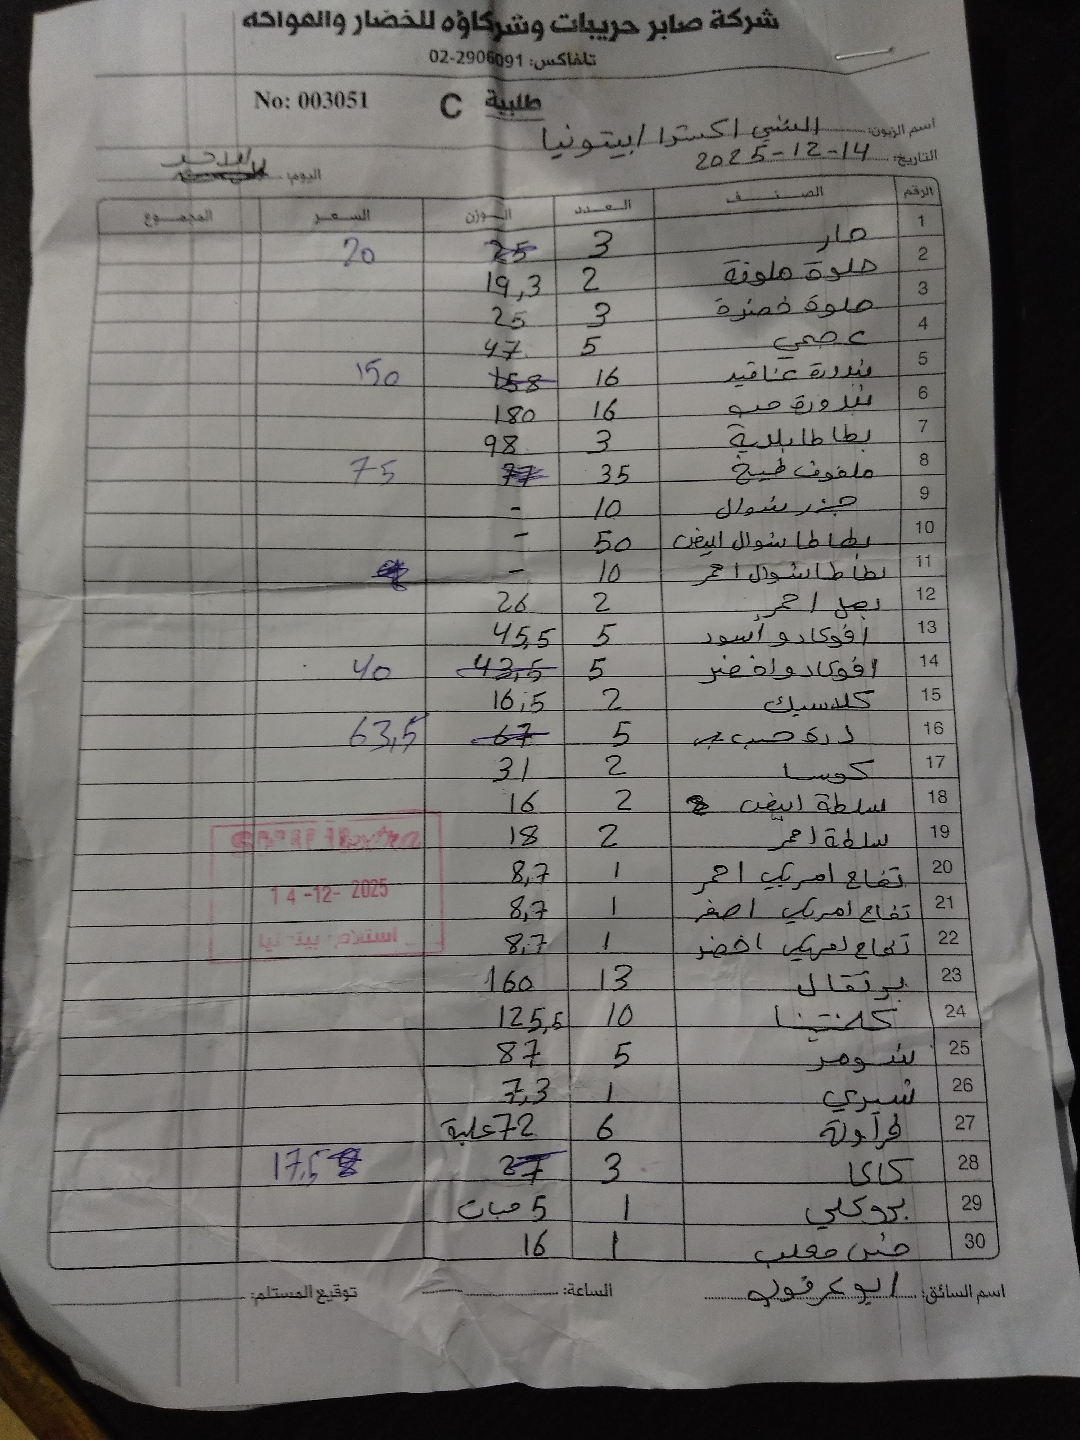 شركة صابر حريبات وشركاؤه للخضار والفواكه
تلفاكس: 02-2906091
No: 003051 C طلبية
اسم الزبون: الشني اكسترا / بيتونيا
التاريخ: 14-12-2025 اليوم: الاحد
الرقم الصنف العدد الوزن السعر المجموع
1 حار 3 25 20
2 حلوة ملونة 2 19,3
3 حلوة خضرة 3 25
4 عجمي 5 47
5 بندورة عناقيد 16 158 150
6 بندورة حب 16 180
7 بطاطا بلدية 3 98
8 ملفوف طبيخ 35 77 75
9 جزر شوال 10 -
10 بطاطا شوال ابيض 50 -
11 بطاطا شوال احمر 10 -
12 بصل احمر 2 26
13 افوكادو اسود 5 45,5
14 افوكادو اخضر 5 43,5 40
15 كلاسيك 2 16,5
16 ذرة حب 5 67 63,5
17 كوسا 2 31
18 سلطة ابيض 2 16
19 سلطة احمر 2 18
20 تفاح امريكي احمر 1 8,7
21 تفاح امريكي اصفر 1 8,7
22 تفاح امريكي اخضر 1 8,7
23 برتقال 13 160
24 كلمنتينا 10 125,5
25 شومر 5 87
26 شيري 1 7,3
27 فراولة 6 72 علبة
28 كاكا 3 27 17,5
29 بروكلي 1 5 حبات
30 خس معلب 1 16
14-12-2025
استلام بيتونيا
اسم السائق: ابو عرقوب الساعة: توقيع المستلم: